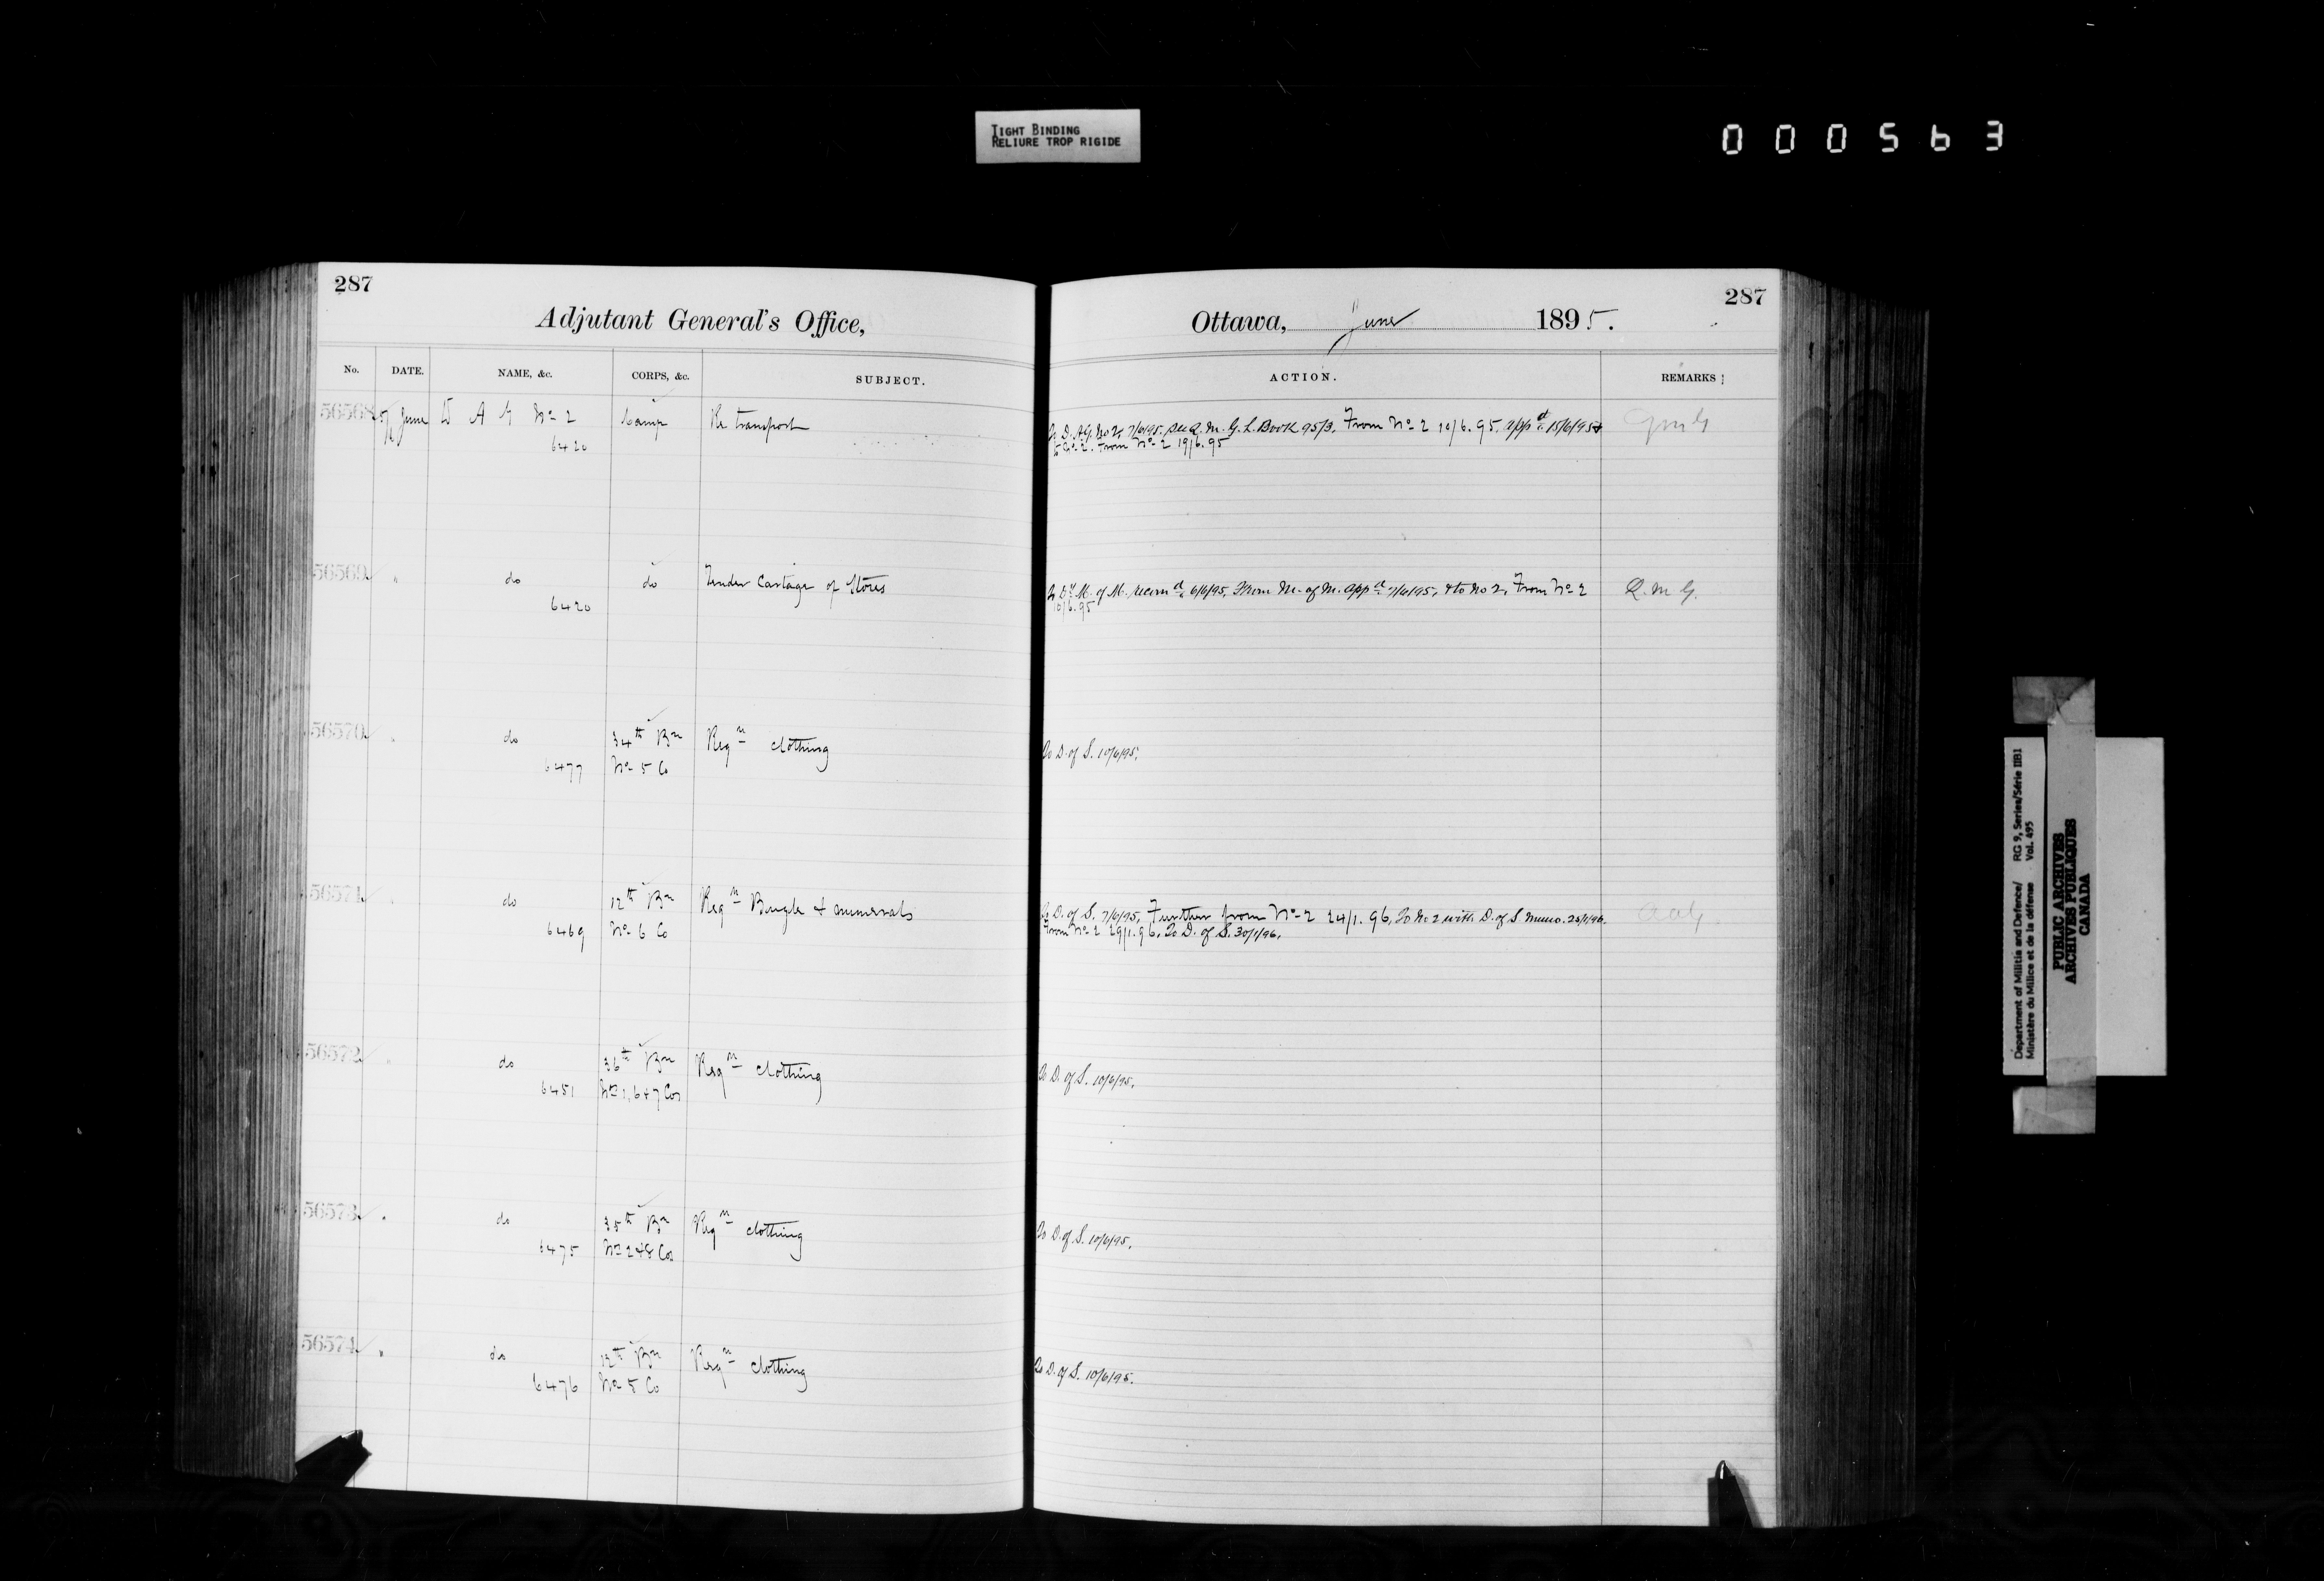 TIGHT BINDING
RELIURE TROP RIGIDE
000563
287
Adjutant General's Office,
No. DATE. NAME, &c. CORPS, &c. SUBJECT.
56568 5/6 June D A G No 2 Camp Re transport
6420
56569 " do do Tender Cartage of Stores
6420
56570 " do 34th Bn Reqn clothing
6477 No 5 Co
56571 " do 12th Bn Reqn Bugle & numerals
6469 No 6 Co
56572 " do 36th Bn Reqn clothing
6451 No 1, 6 & 7 Cos
56573 " do 35th Bn Reqn clothing
6475 No 2 & 8 Cos
56574 " do 12th Bn Reqn clothing
6476 No 5 Co
287
Ottawa, June 1895.
ACTION. REMARKS
To D.A.G. No 2, 7/6/95. See Q.M.G. L. Book 95/3. From No 2 10/6.95. appd 15/6/95 &
to No 2. From No 2 19/6.95
To Dy M. of M. recomd 6/6/95, From M. of M. appd 7/6/95, & to No 2, From No 2 Q.M.G.
10/6.95
To D. of S. 10/6/95.
To D. of S. 7/6/95, Further from No 2 24/1.96, To No 2 with D. of S. memo. AAG
From No 2 29/1.96, To D. of S. 30/1/96.
To D. of S. 10/6/95.
To D. of S. 10/6/95.
To D. of S. 10/6/95.
Department of Militia and Defence/ RG 9, Series/Série IIB1
Ministère du Milice et de la défense Vol. 495
PUBLIC ARCHIVES
ARCHIVES PUBLIQUES
CANADA